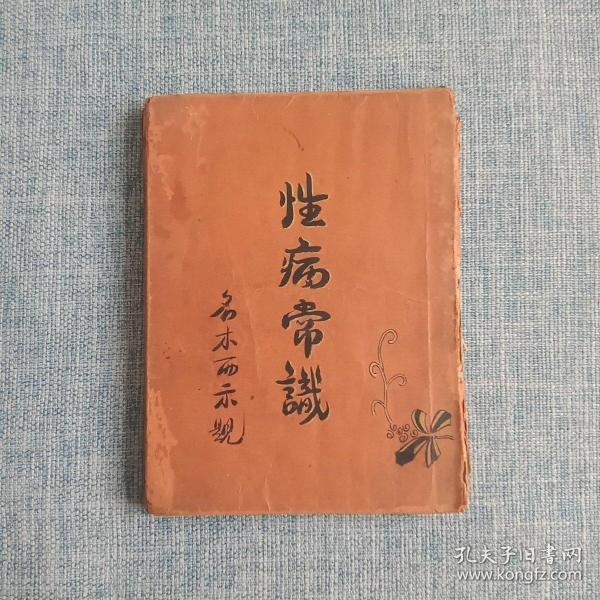 性病常識
名木而示題
孔夫子旧书网
www.kongfz.com